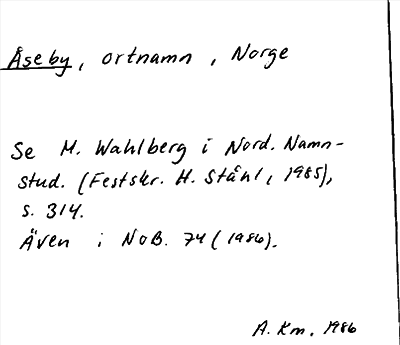 Åseby, ortnamn, Norge
Se M. Wahlberg i Nord. Namn-
stud. (Festskr. H. Ståhl, 1985),
s. 314.
Även i NoB. 74 (1986).
A. Km. 1986